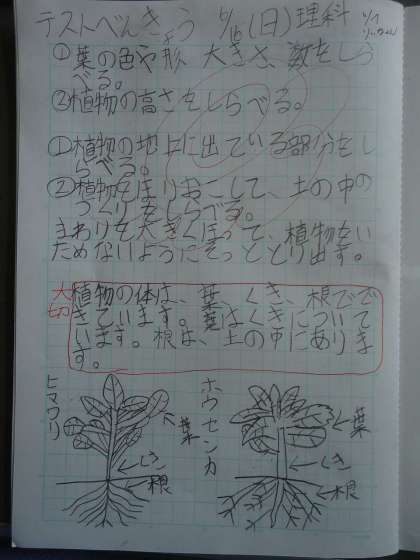 テストべんきょう 6/16(日)理科
①葉の色や形 大きさ、数をしら
べる。
②植物の高さをしらべる。
①植物の地上に出ている部分をし
らべる。
②植物をほりおこして、土の中の
つくりをしらべる。
まわりを大きくほって、植物をい
ためないようにそっととりだす。
大切
植物の体は、葉、くき、根でで
きています。葉はくきについて
います。根は、土の中にありま
す。
ヒマワリ
葉
くき
根
ホウセンカ
葉
くき
根